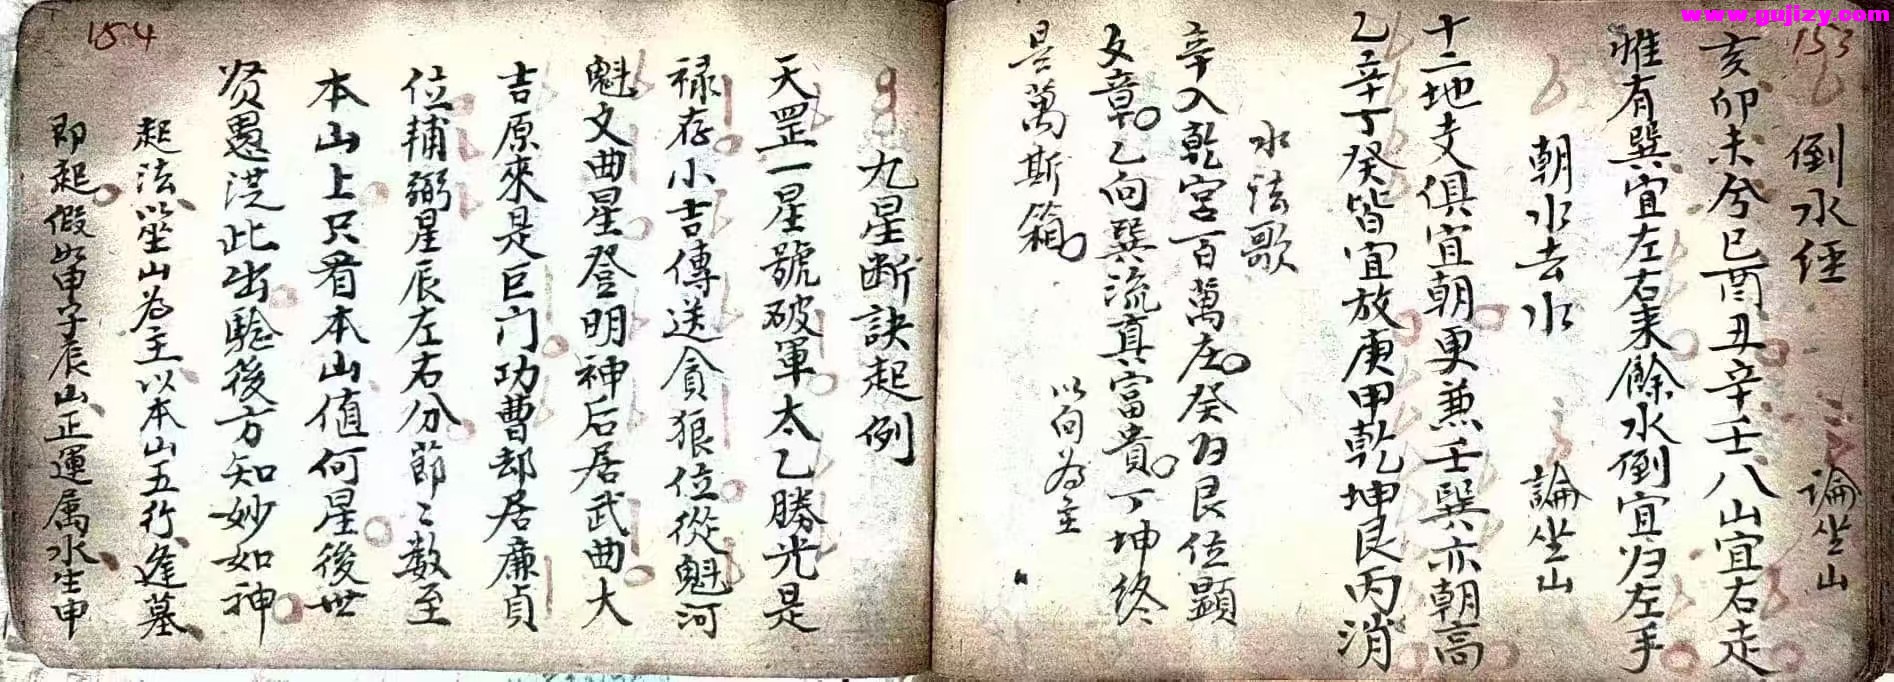 www.gujizy.com
153
倒水经 論坐山
亥卯未兮巳酉丑辛壬八山宜右走
惟有巽宜左右来餘水倒宜归左手
朝水去水 論坐山
十二地支俱宜朝更兼壬巽亦朝高
乙辛丁癸皆宜放庚甲乾坤艮丙消
水法歌
辛入乾宮百萬庄癸归艮位顯
文章乙向巽流真富貴丁坤终
是萬斯箱 以向为主
154
九星断訣起例
天罡一星號破軍太乙勝光是
禄存小吉傳送貪狼位從魁河
魁文曲星登明神后居武曲大
吉原來是巨门功曹却居廉貞
位輔弼星辰左右分節〻数至
本山上只看本山值何星後世
贤愚洪此出驗後方知妙如神
起法以坐山为主以本山五行逢墓
即起假如甲子辰山正運属水生申